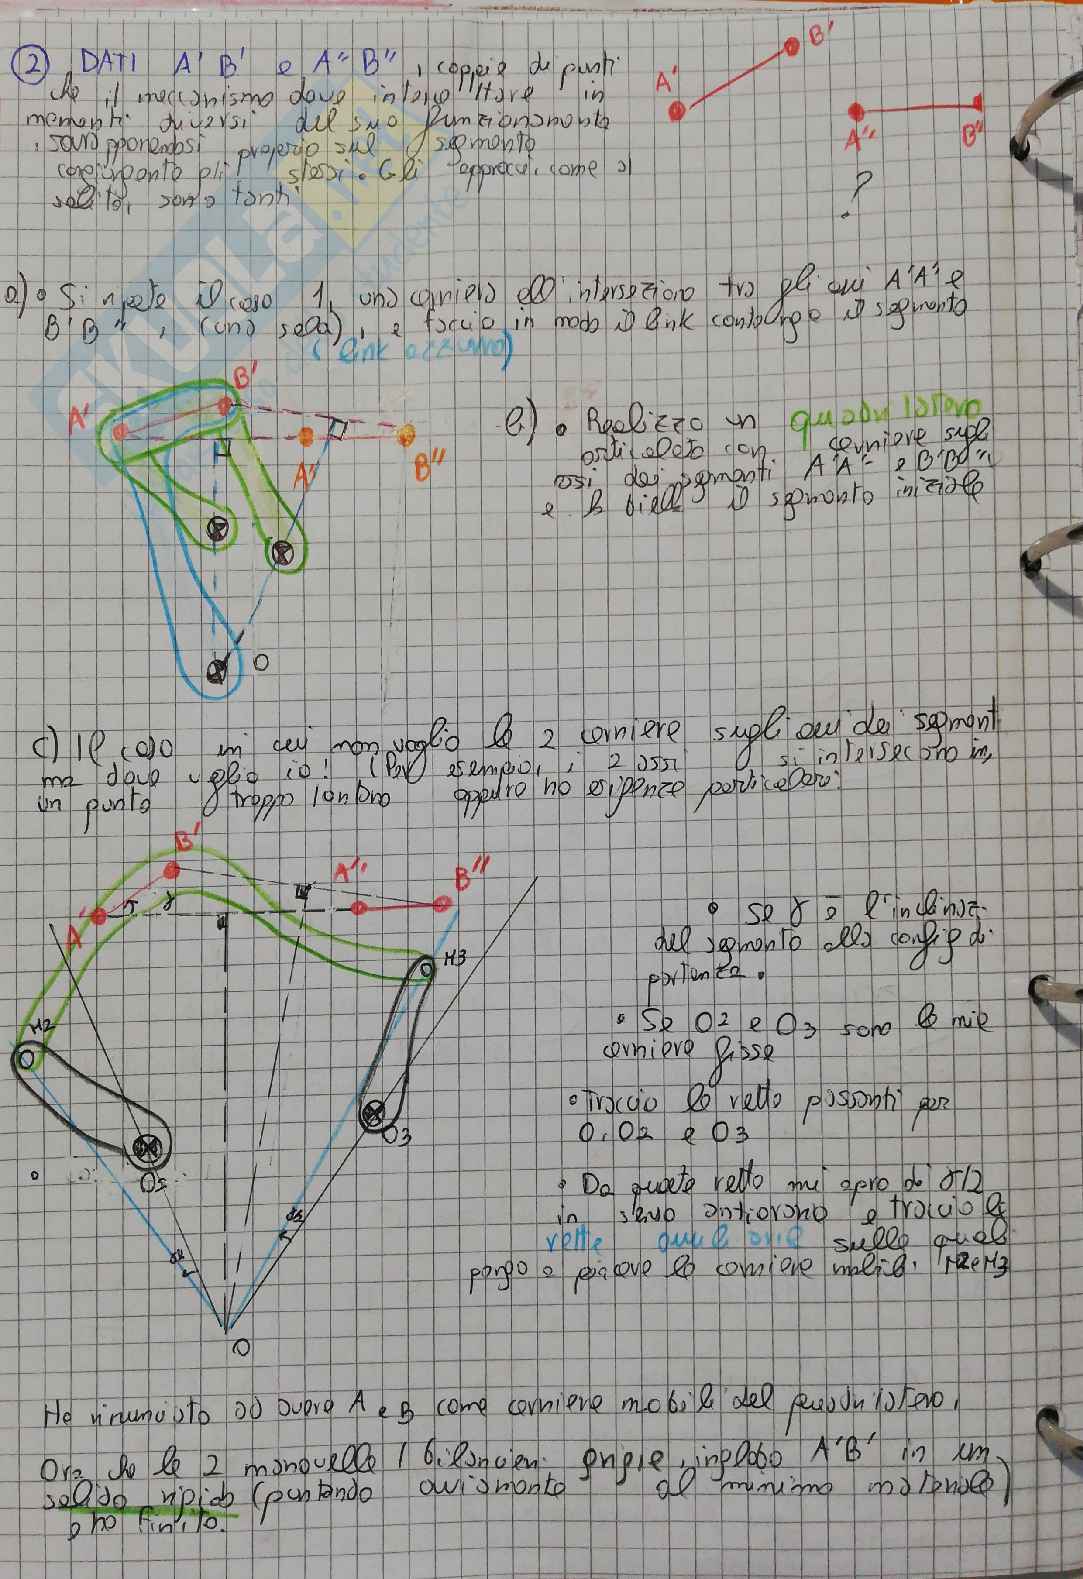 ② DATI A' B' e A" B", coppie di punti
che il meccanismo deve intercettare in
momenti diversi del suo funzionamento
, sovrapponendosi proprio sul segmento
congiungente gli stessi. Gli approcci, come al
solito, sono tanti
A' B' A" B"
?
a) • Si ripete il caso 1, una cerniera all'intersezione tra gli assi A'A" e
B'B", (una sola), e faccio in modo il link contenga il segmento
(link azzurro)
A' B' A" B" O
b) • Realizzo un quadrilatero
articolato con cerniere sugli
assi dei segmenti A'A" e B'B",
e la biella il segmento iniziale
c) Il caso in cui non voglio le 2 cerniere sugli assi dei segmenti
ma dove voglio io! (Per esempio, i 2 assi si intersecano in
un punto troppo lontano oppure ho esigenze particolari)
A' B' A" B" γ
M2 M3 O3 O
• Se γ è l'inclinaz.
del segmento alla config di
partenza.
• Se O2 e O3 sono le mie
cerniere fisse
• Traccio le rette passanti per
O, O2 e O3
• Da queste rette mi apro di γ/2
in senso antiorario e traccio le
rette sulle quali
pongo a piacere le cerniere mobili. M2 e M3
Ho rinunciato ad avere A e B come cerniere mobili del quadrilatero,
Ora che le 2 manovelle / bilancieri inglobo A'B' in un
solido rigido (puntando ovviamente al minimo materiale)
e ho finito.